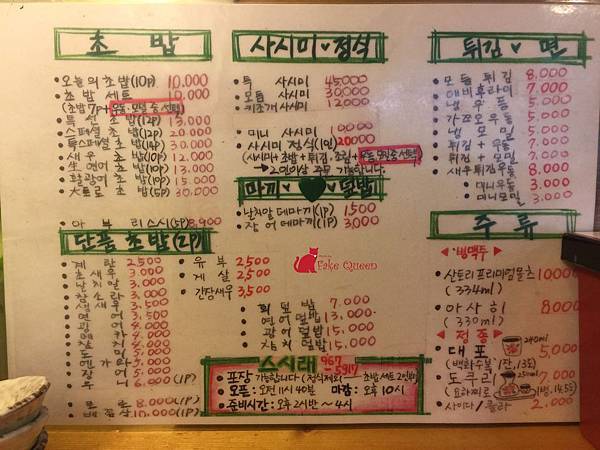 초 밥
오늘의초밥(10P) 10,000
초밥 세트 10,000
(초밥7P+우동·모밀 중 선택)
특선 초밥(12P) 13,000
스페셜 초밥(12P) 20,000
특스페셜초밥(14P) 30,000
새우 초밥(10P) 12,000
생연어 초밥(10P) 13,000
활광어 초밥(10P) 15,000
大토로 초밥(5P) 30,000
아부리스시(5P) 8,900
단품 초밥(2P)
계란 2,500
초새우 3,000
날치알 3,000
참소라 3,000
생새우
연어 4,000
광어 4,000
유부 2,500
게살 2,500
간장새우 3,500
장어
우니 6,000(1P)
8,000(1P)
10,000(1P)
사시미♥정식
특 사시미 45,000
모듬 사시미 30,000
키조개 사시미 12,000
미니 사시미 10,000
사시미 정식(1인) 20,000
(사시미+초밥+튀김+조림+우동,모밀중 선택)
→2인이상 주문 가능합니다.
마끼♥덮밥
날치알데마끼(1P) 1,500
장어 데마끼(1P) 3,000
Fake Queen
회덮밥 7,000
연어덮밥 13,000
광어덮밥 15,000
참치덮밥 15,000
스시래 967-5917
포장 가능합니다 (정식제외) 초밥세트 2인부터
오픈 : 오전 11시 40분 마감 : 오후 10시
준비시간 : 오후 2시반 ~ 4시
튀김♥면
모듬 튀김 8,000
에비후라이 7,000
냉우동 5,000
가쯔오우동 5,000
냉모밀 5,000
튀김+우동 7,000
튀김+모밀 7,000
새우튀김우동 8,000
미니우동 3,000
미니모밀 3,000
주 류
◀병맥주▶
산토리프리미엄몰츠 10,000
(334ml)
아사히 8,000
(330ml)
◀정종▶
대포 240ml 5,000
(백화수복 1잔,13도)
도쿠리 250ml 7,000
사이다/콜라 2,000